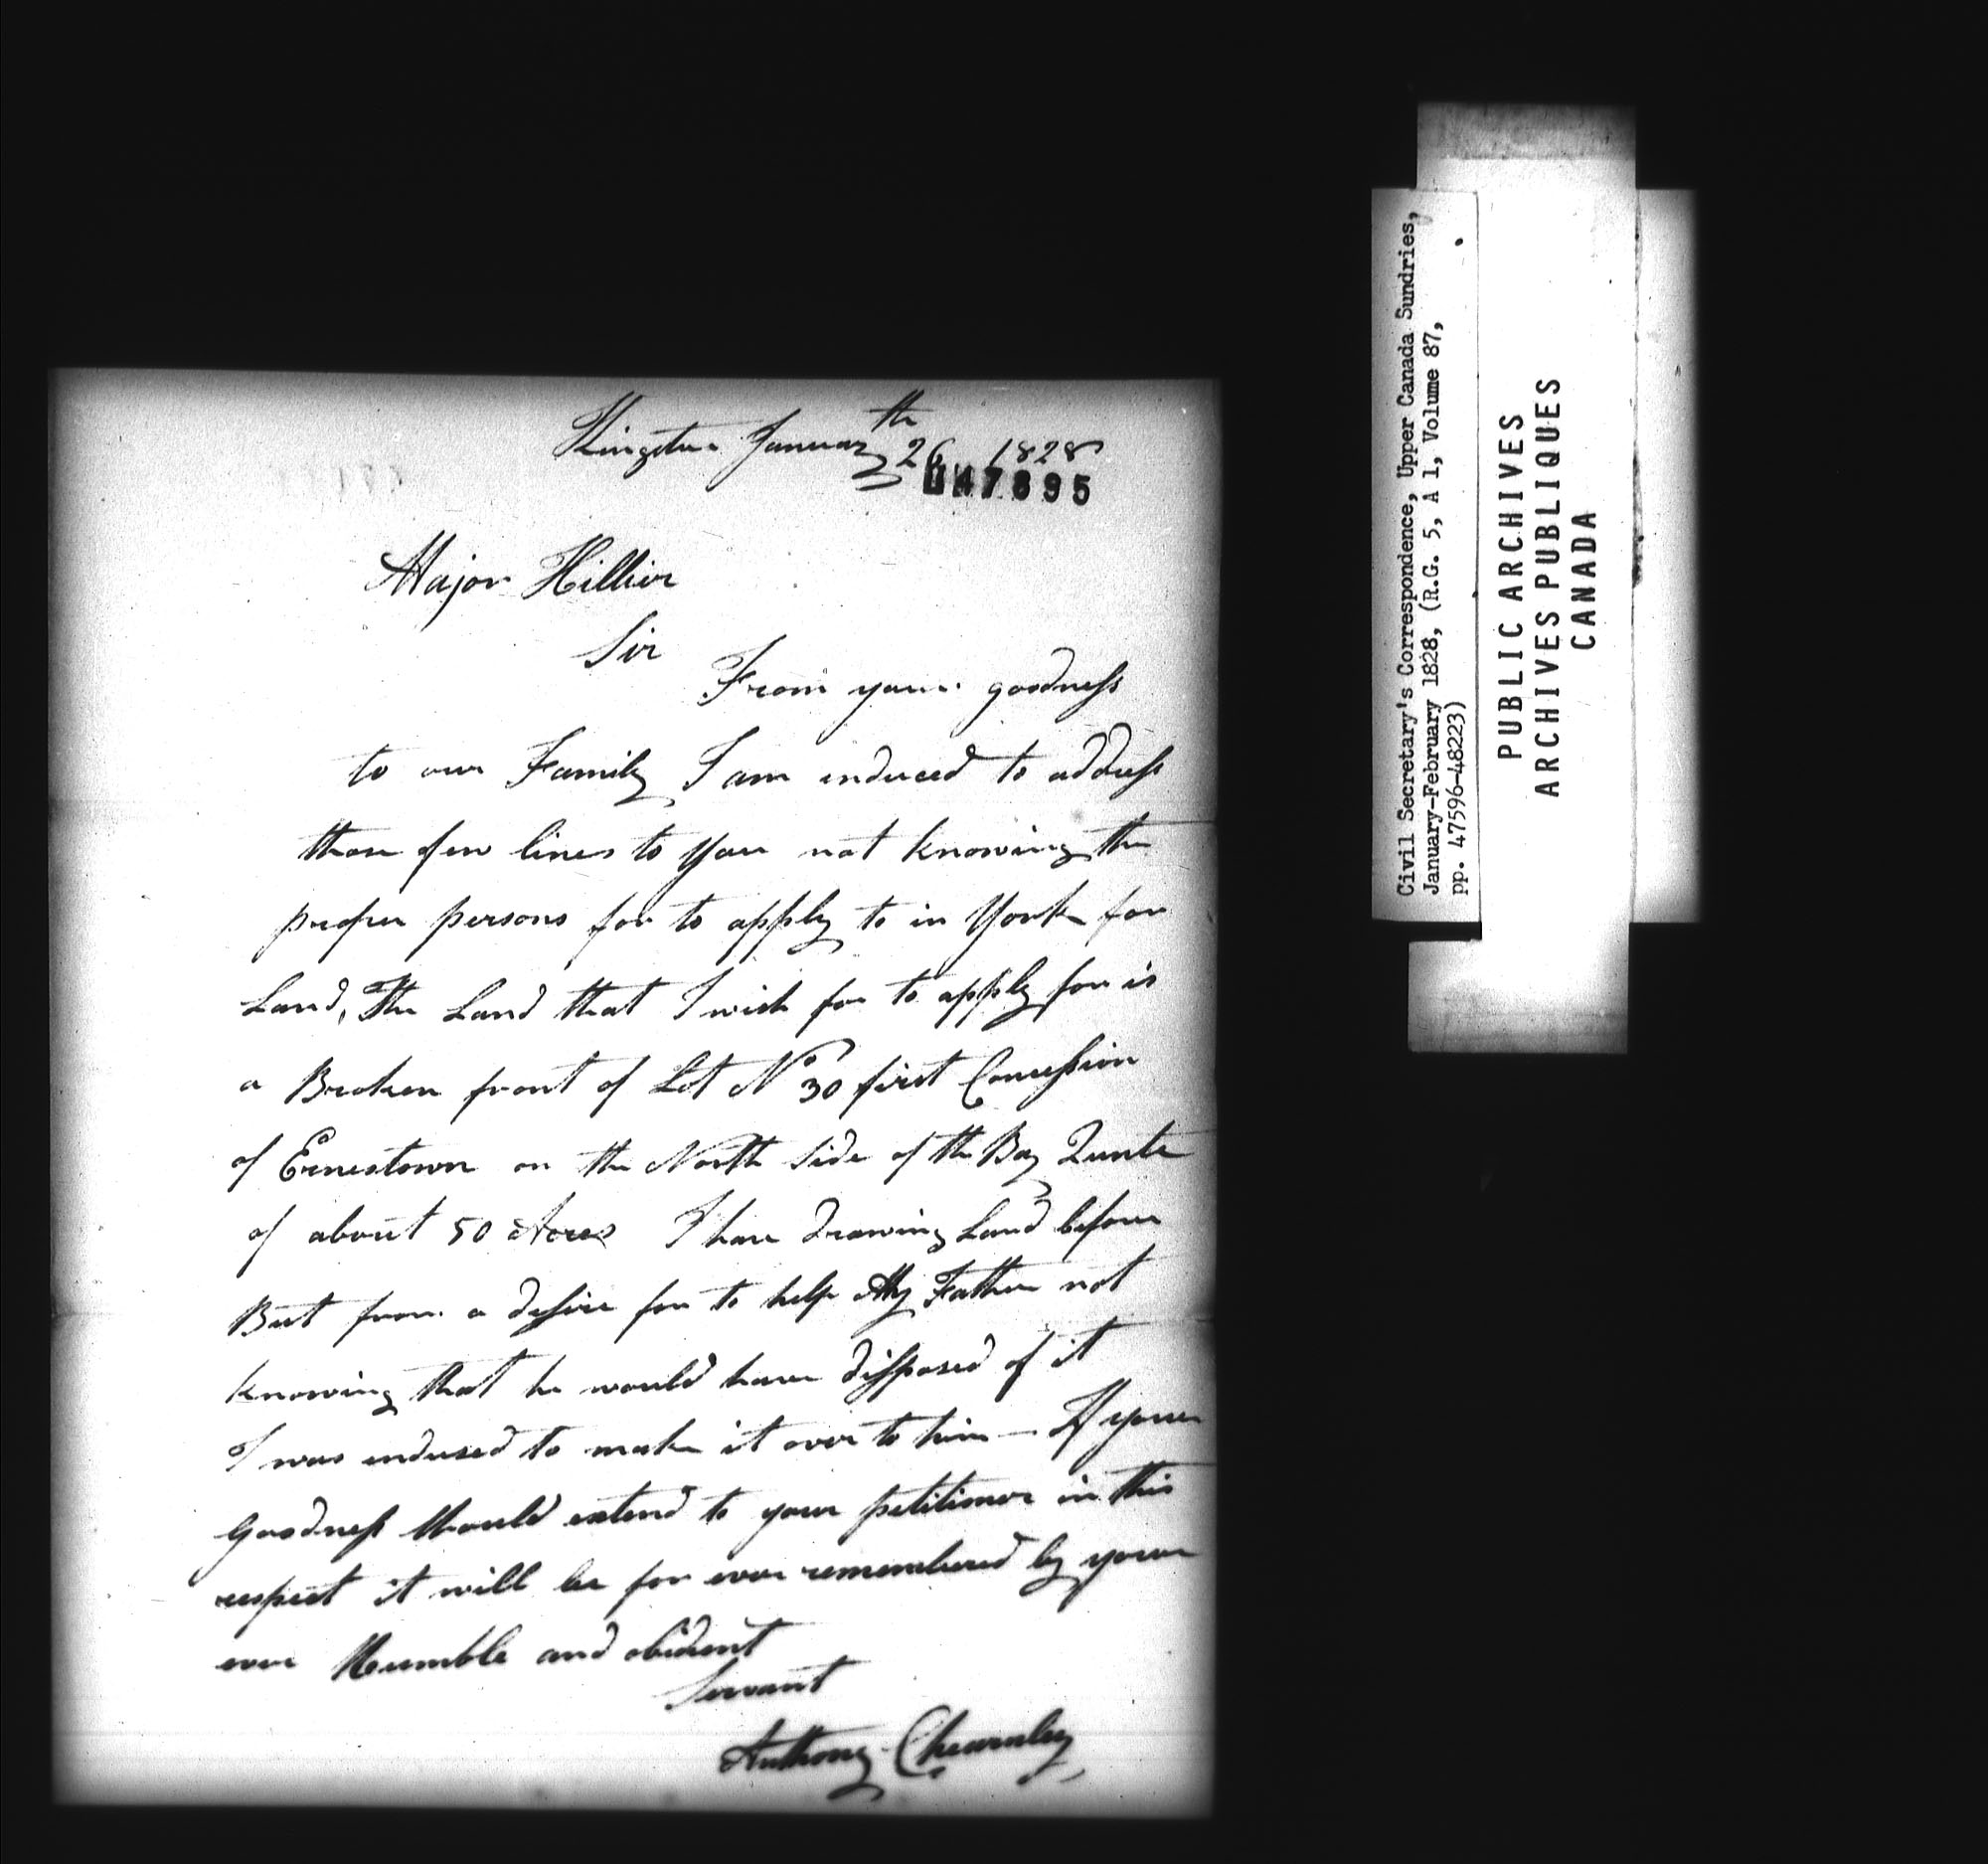 Kingston January 26th 1828
047895
Major Hillier
Sir
From your goodness
to our Family I am induced to address
those few lines to you not knowing the
proper persons for to apply to in York for
Land, The Land that I wish for to apply for is
a Broken front of Lot No 30 first Concession
of Ernestown on the North Side of the Bay Qunte
of about 50 Acres I have drawing Land before
But from a desire for to help My Father not
knowing that he would have disposed of it
I was endused to make it over to him — If your
Goodness Should extend to your petitioner in this
respect it will be for ever remembered by your
ever Humble and obident
Servant
Anthony Chearnley
Civil Secretary's Correspondence, Upper Canada Sundries,
January-February 1828, (R.G. 5, A 1, Volume 87,
pp. 47596-48223)
PUBLIC ARCHIVES
ARCHIVES PUBLIQUES
CANADA